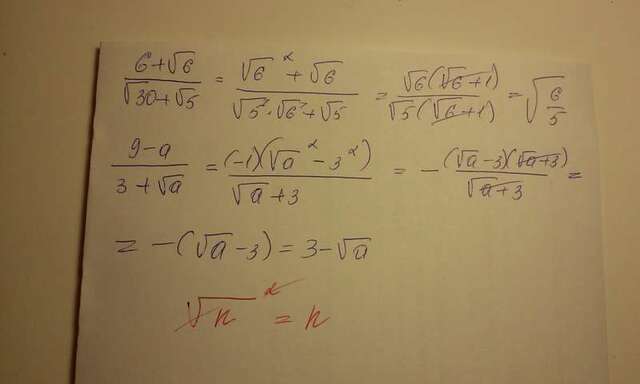 (6+√6)/(√30+√5) = (√6²+√6)/(√5·√6+√5) = √6(√6+1)/√5(√6+1) = √(6/5)
(9-a)/(3+√a) = (-1)(√a²-3²)/(√a+3) = -(√a-3)(√a+3)/(√a+3) =
= -(√a-3) = 3-√a
√n² = n